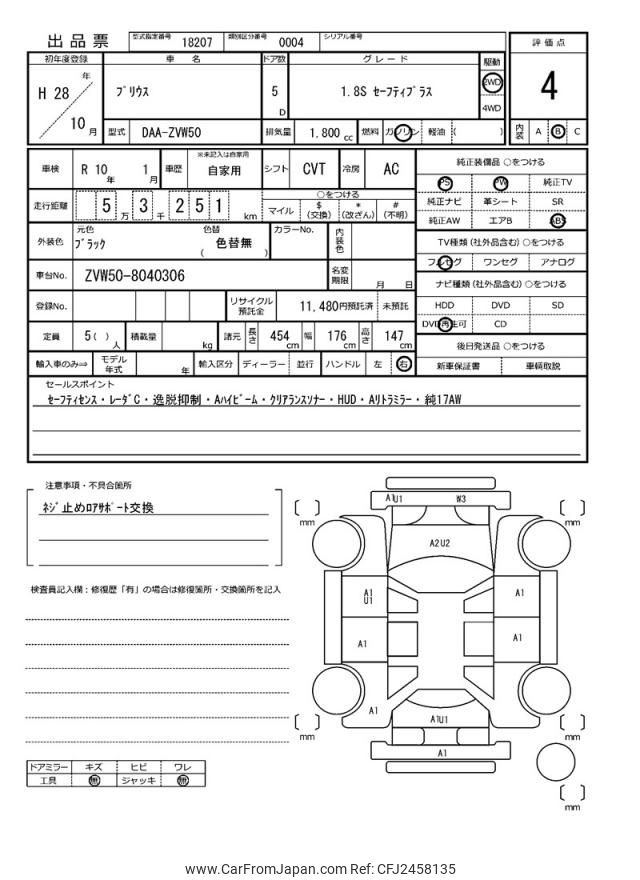 出品票 型式指定番号 18207 類別区分番号 0004 シリアル番号
初年度登録 車名 ドア数 グレード 駆動 評価点
H 28 年 10 月
プリウス 5 D 1.8S セーフティプラス 2WD 4WD 4
型式 DAA-ZVW50 排気量 1,800 cc 燃料 ガソリン 軽油 ( ) 内装 A B C
車検 R 10 年 1 月 車歴 ※未記入は自家用 自家用 シフト CVT 冷房 AC 純正装備品 ○をつける
PS PW 純正TV
走行距離 5 万 3 千 2 5 1 km ○をつける 純正ナビ 革シート SR
マイル $ (交換) * (改ざん) # (不明) 純正AW エアB ABS
外装色 元色 ブラック 色替 ( 色替無 ) カラーNo. 内装色 TV種類 (社外品含む) ○をつける
フルセグ ワンセグ アナログ
車台No. ZVW50-8040306 名変期限 月 日 ナビ種類 (社外品含む) ○をつける
登録No. リサイクル預託金 11,480円預託済 未預託 HDD DVD SD
DVD再生可 CD
定員 5 ( ) 人 積載量 kg 諸元 長さ 454 cm 幅 176 cm 高さ 147 cm 後日発送品 ○をつける
輸入車のみ⇒ モデル年式 年 輸入区分 ディーラー 並行 ハンドル 左 右 新車保証書 車輌取説
セールスポイント
セーフティセンス・レーダC・逸脱抑制・Aハイビーム・クリアランスソナー・HUD・Aリトラミラー・純17AW
注意事項・不具合箇所
ネジ止めロアサポート交換
検査員記入欄:修復歴「有」の場合は修復箇所・交換箇所を記入
A1U1 W3
mm mm
A2U2
A1 U1 A1
A1 A1
A1 A1U1
mm mm
A1
mm
ドアミラー キズ ヒビ ワレ
工具 無 ジャッキ 無
www.CarFromJapan.com Ref: CFJ2458135